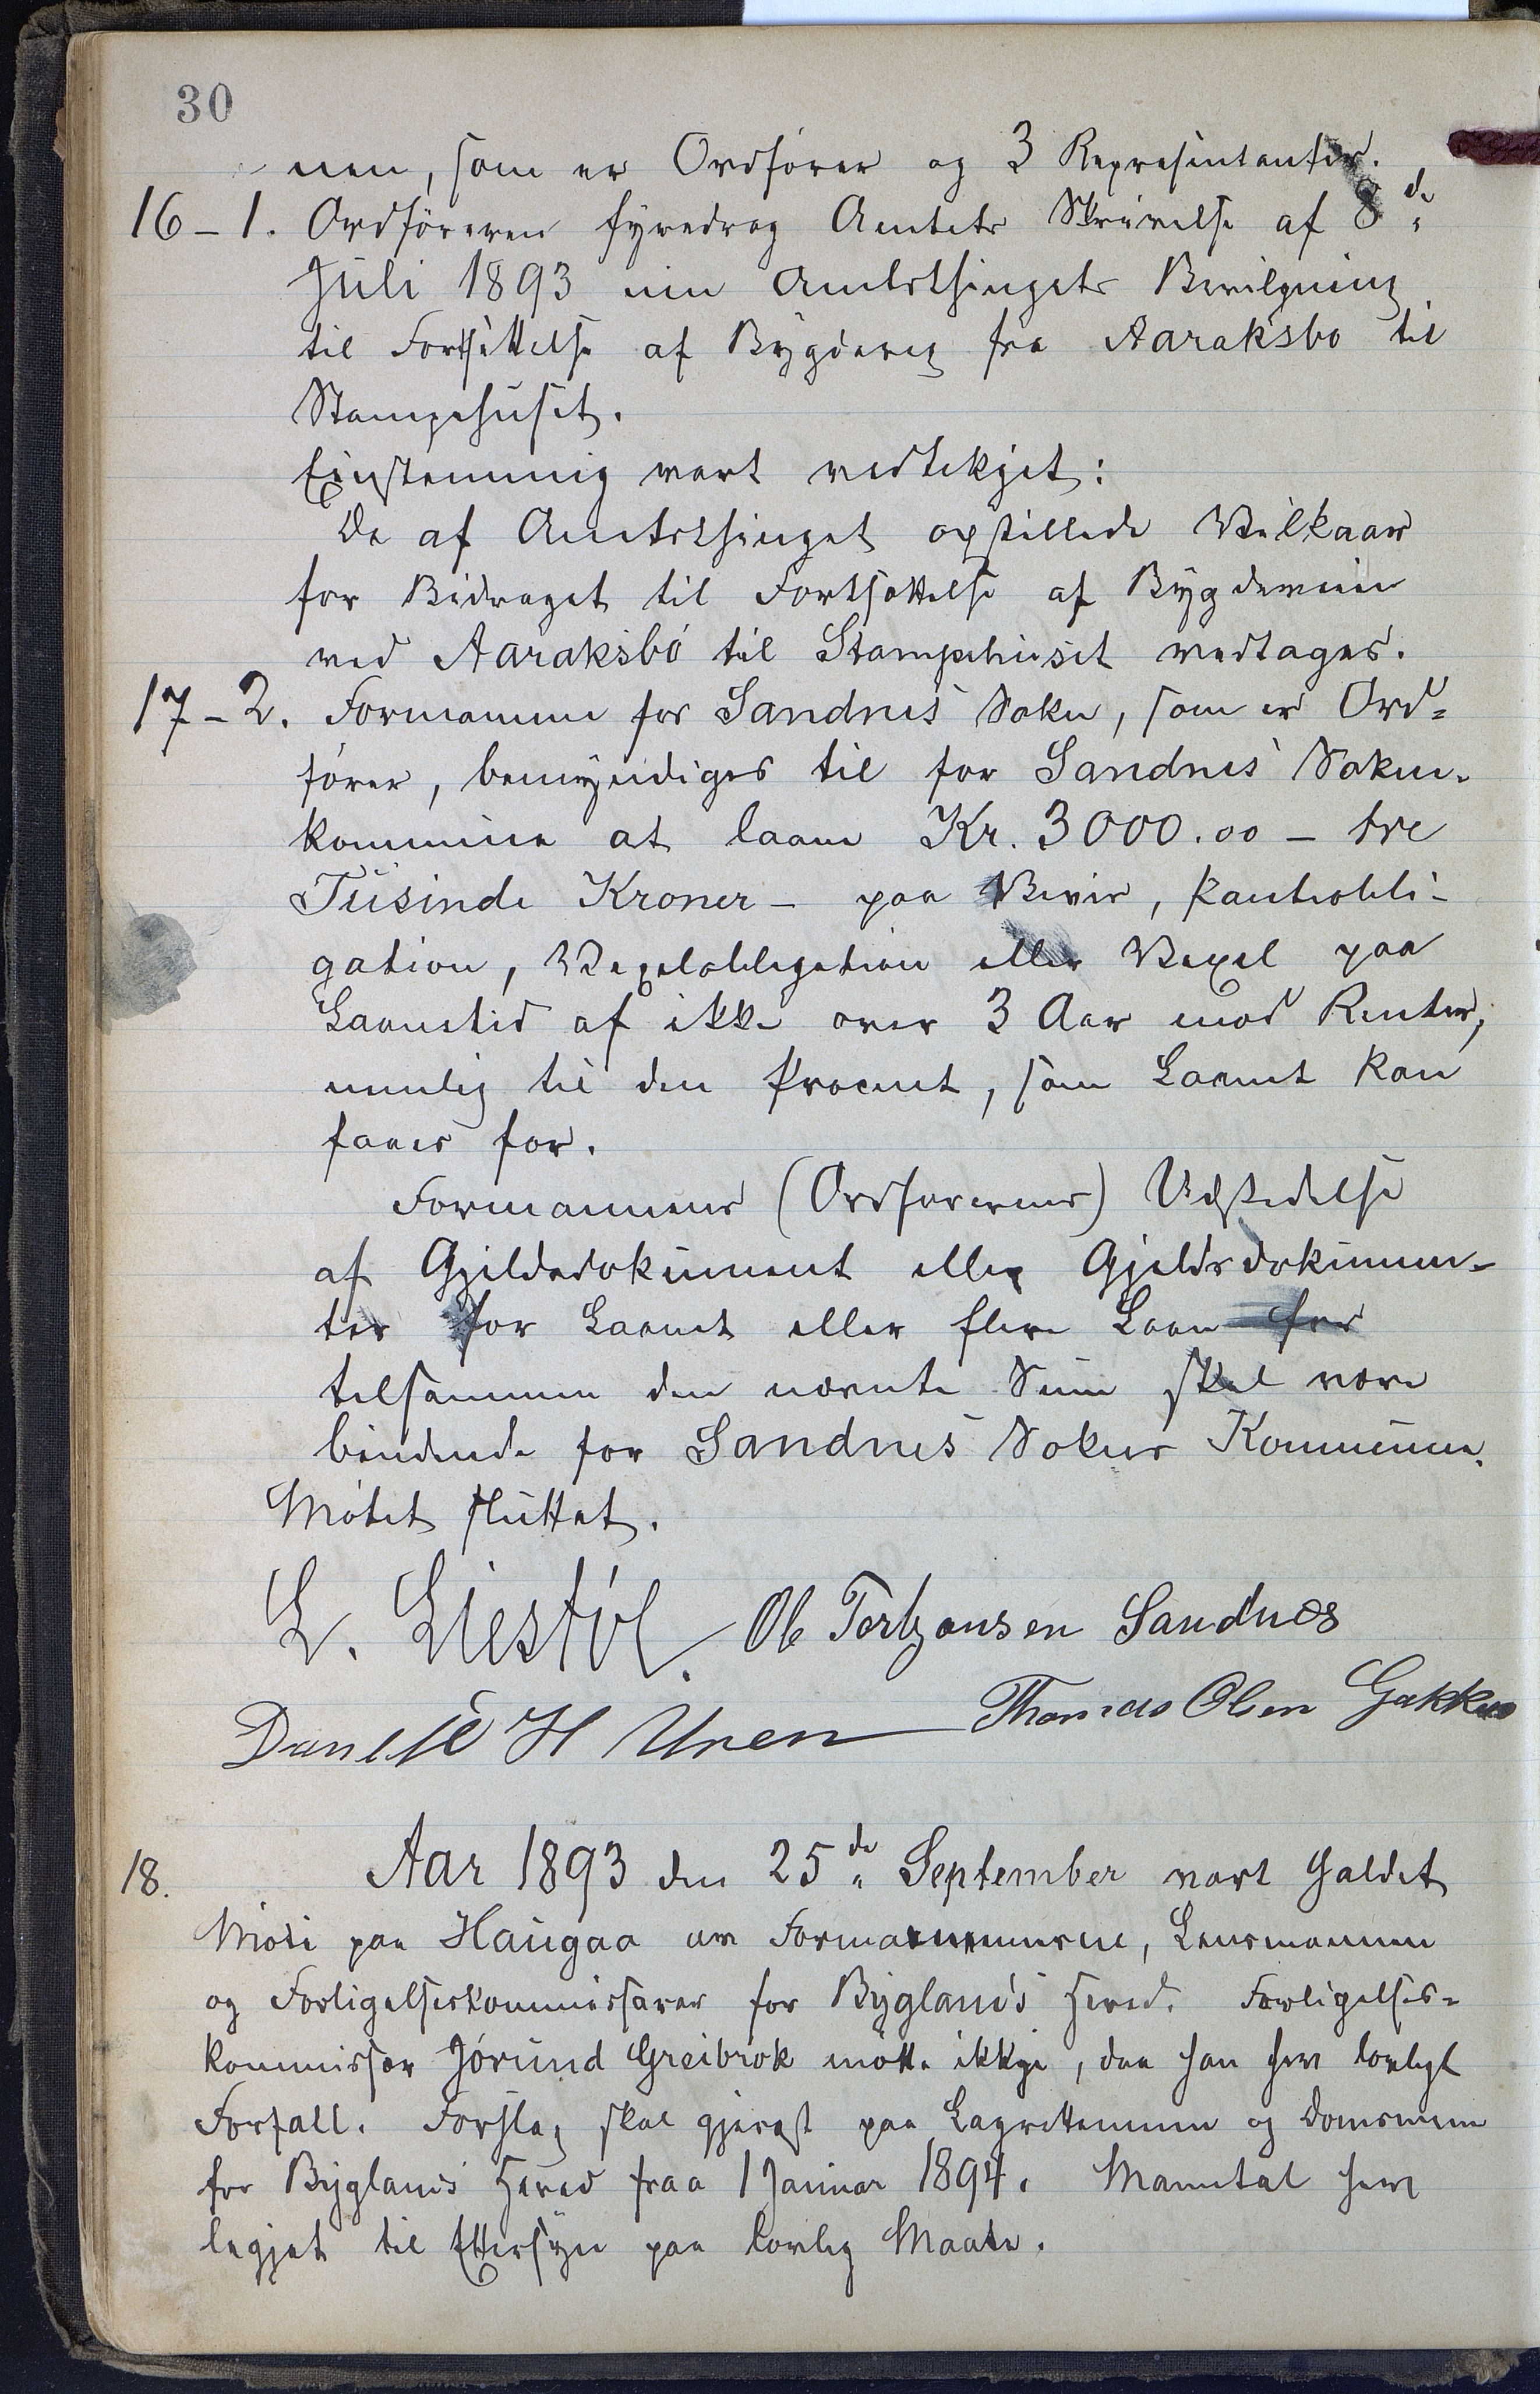 30
nen, som er Ordförer og 3 Repræsentanter.
16-1. Ordföreren fyredrog Amtets Skrivelse af 8de
Juli 1893 um Amtsthingets Bevilgning
til Fortsættelse af Bygdeveg fra Aaraksbo til
Stampehuset.
Einstemmig vart vedtekjet:
De af Amtsthinget opstillede Vilkaar
for Bidraget til Fortsættelse af Bygdeveien
ved Aaraksbö til Stampehuset vedtages.
17-2. Formannen for Sandnes Sokn, som er Ord=
förer, bemyndiges til for Sandnes Sokne-
kommune at laane Kr. 3000.00 - tre
Tusinde Kroner - paa Bevis, Pantobli-
gation, Vexelobligation eller Vexel paa
Laanetid af ikke over 3 Aar mod Renter,
nemlig til den Procent, som Laanet kan
faaes for.
Formannens (Ordförerens) Udstedelse
af Gjeldsdokument eller Gjeldsdokumen-
ter for Laanet eller flere Laan for
tilsammen den nævnte Sum skal være
bindende for Sandnes Sokns Kommune.
Mötet sluttat.
L. Liestöl. Ole Terkjansen Sandnes
Daniel H Uren Thomas Olsen Gakkes
18. Aar 1893 den 25de September vart haldet
Möte paa Haugaa av Formannmennene, Lensmannen
og Forligelseskommissærer for Byglands Hered. Forligelses=
kommissær Jörund Greibrok mötte ikkje, daa han hev lovlegt
Forfall. Forslag skal gjerast paa Lagrettemenn og Domsmenn
for Byglands Hered fraa 1 Januar 1894. Manntal hev
legjet til Ettersyn paa lovleg Maate.